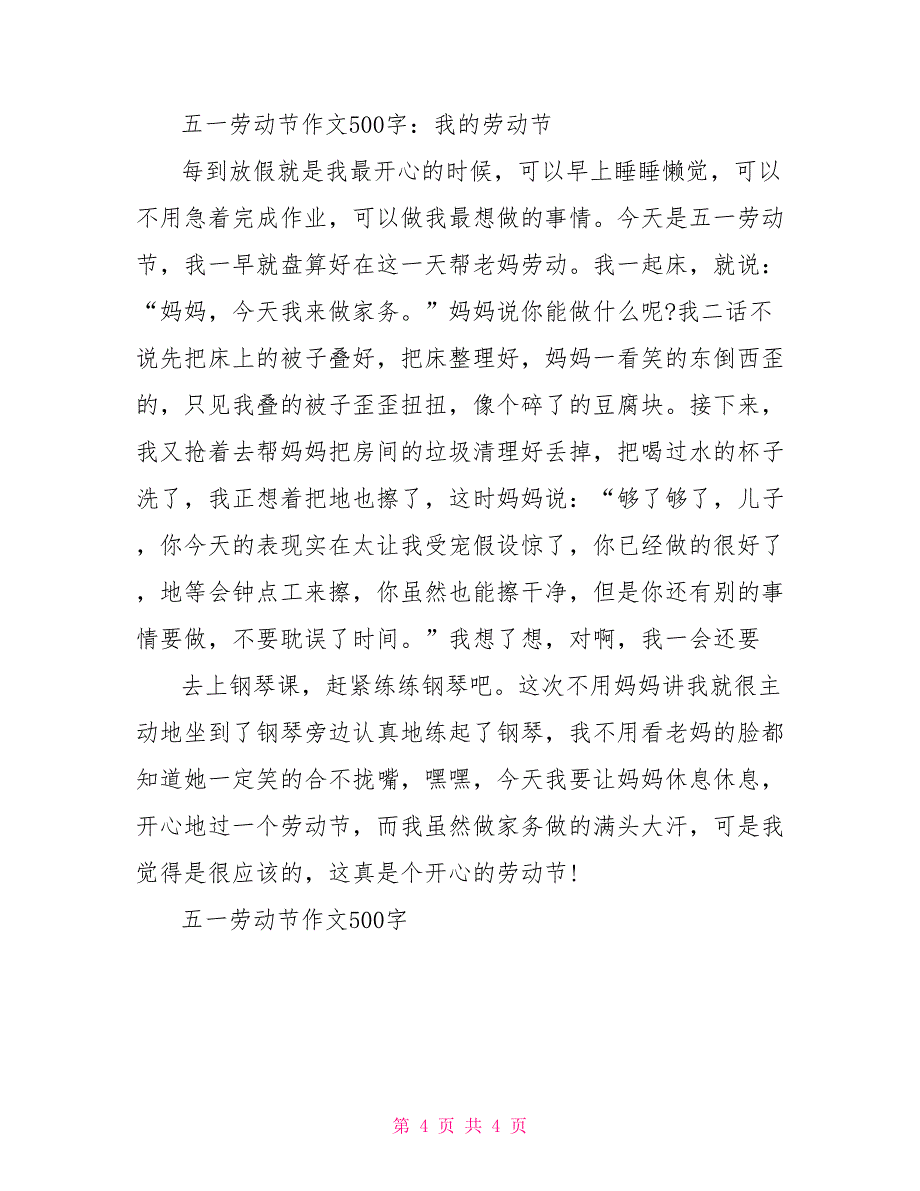 五一劳动节作文500字：我的劳动节
每到放假就是我最开心的时候，可以早上睡睡懒觉，可以
不用急着完成作业，可以做我最想做的事情。今天是五一劳动
节，我一早就盘算好在这一天帮老妈劳动。我一起床，就说：
“妈妈，今天我来做家务。”妈妈说你能做什么呢?我二话不
说先把床上的被子叠好，把床整理好，妈妈一看笑的东倒西歪
的，只见我叠的被子歪歪扭扭，像个碎了的豆腐块。接下来，
我又抢着去帮妈妈把房间的垃圾清理好丢掉，把喝过水的杯子
洗了，我正想着把地也擦了，这时妈妈说：“够了够了，儿子
，你今天的表现实在太让我受宠假设惊了，你已经做的很好了
，地等会钟点工来擦，你虽然也能擦干净，但是你还有别的事
情要做，不要耽误了时间。”我想了想，对啊，我一会还要
去上钢琴课，赶紧练练钢琴吧。这次不用妈妈讲我就很主
动地坐到了钢琴旁边认真地练起了钢琴，我不用看老妈的脸都
知道她一定笑的合不拢嘴，嘿嘿，今天我要让妈妈休息休息，
开心地过一个劳动节，而我虽然做家务做的满头大汗，可是我
觉得是很应该的，这真是个开心的劳动节!
五一劳动节作文500字
第 4 页 共 4 页